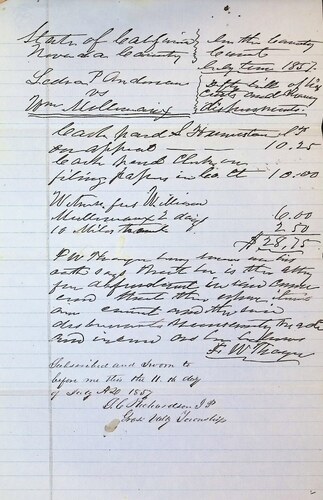 State of California } In the County
Nevada County } Court
July term 1857.
Ledra P Anderson
vs
Wm Mullennix
Defts bill of his
costs and
disbursements
Cash paid S
on appeal 10.25
Cash paid Clerk on
filing papers in Co Ct 10.00
Witness fees William
Mullennix 2 day 6.00
10 Miles travel 2.50
$28.75
F W Thayer being sworn on his
oath says that he is the atty
for defendant in said cause
and that the above items
are correct and the said
disbursements
and
F. W. Thayer
Subscribed and Sworn to
before me this the 11.th day
of July AD 1857
Richardson J P
Grass Valley Township